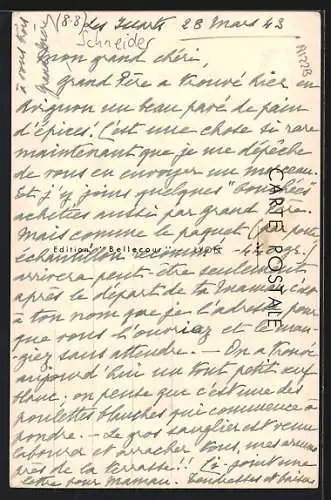 (8-8)
Schneider
Les Issarts 28 Mars 43
Mon grand chéri,
grand Père a trouvé hier en
Avignon un beau pavé de pain
d'épices. C'est une chose si rare
maintenant que je me dépêche
de vous en envoyer un morceau.
Et j'y joins quelques "bouchées"
achetées aussi par grand Père.
Mais comme le paquet (
échantillon recommandé
arrivera peut-être seulement
après le départ de ta Maman c'est
à ton nom que je l'adresse pour
que vous l'ouvriez et le man-
giez sans attendre. - On a trouvé
aujourd'hui un tout petit œuf
blanc; on pense que c'est une des
poulettes blanches qui commence à
pondre. - Le gros sanglier est venu
labourer et arracher tous mes
près de la terrasse!! Ci-joint une
lettre pour Maman. Tendresses et baisers
à vous trois
Grand-Mère
Edition "Bellecour" Lyon
CARTE POSTALE
A422B